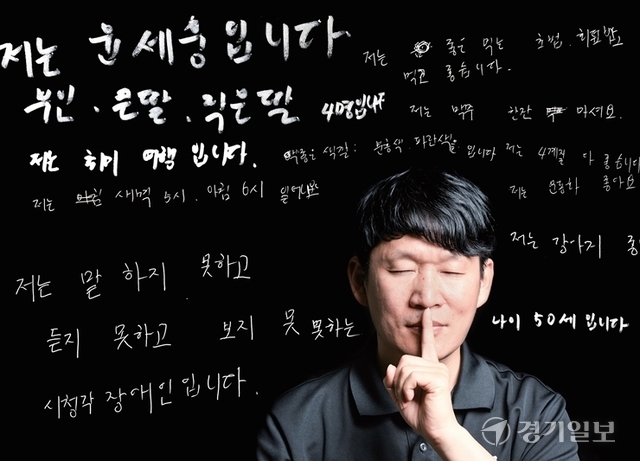 저는 윤세웅입니다
부인. 큰딸. 작은딸 4명입니다
저는 취미 여행 입니다.
저는 새벽 5시. 아침 6시 일어나요
저는 좋은 먹는 초밥. 회
먹고 좋습니다.
저는 맥주 한잔 마셔요.
좋은 색깔: 분홍색. 파란색 입니다
저는 4계절 다 좋습니다
저는 운동하 좋아요
저는 강아지
나이 50세 입니다
저는 말 하지 못하고
듣지 못하고 보지 못 못하는
시청각 장애인입니다.
경기일보